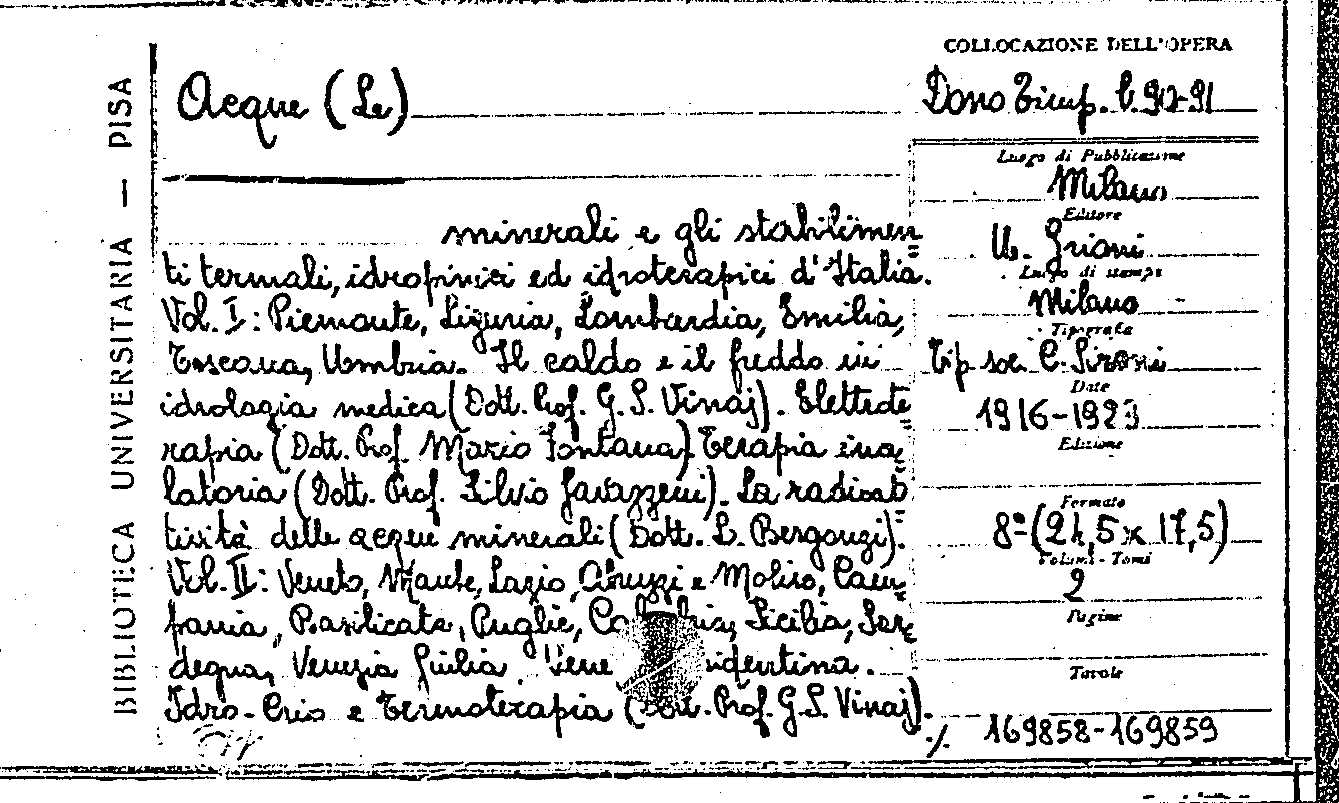 BIBLIOTECA UNIVERSITARIA — PISA
Acque (Le)
minerali e gli stabilimen
ti termali, idropinici ed idroterapici d'Italia.
Vol. I: Piemonte, Liguria, Lombardia, Emilia,
Toscana, Umbria. Il caldo e il freddo in
idrologia medica (Dott. Prof. G. S. Vinaj). Elettrote
rapia (Dott. Prof. Mario Fontana) Terapia ina
latoria (Dott. Prof. Silvio Gavazzeni). La radioat
tività delle acque minerali (Dott. L. Bergonzi).
Vol. II: Veneto, Marche, Lazio, Abruzzi e Molise, Cam
pania, Basilicata, Puglie, Sicilia, Sar
degna, Venezia Giulia.
Idro-Crio e Termoterapia (Dott. Prof. G. S. Vinaj).
./.
COLLOCAZIONE DELL'OPERA
Dono Timp. b. 90-91
Luogo di Pubblicazione
Milano
Editore
U. Grioni
Luogo di stampa
Milano
Tipografia
Tip soc. C. Sironi
Date
1916-1923
Edizione
Formato
8º (24,5 x 17,5)
Volumi - Tomi
2
Pagine
Tavole
169858-169859